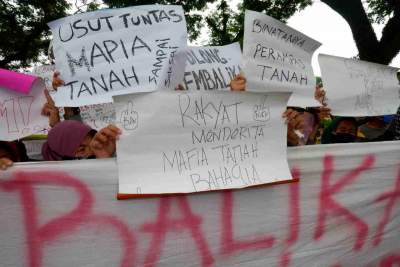 USUT TUNTAS
MAFIA
TANAH
SAMPAI
OLONG
EMBALIK
BINATANYA
PERAMPAS
TANAH
RAKYAT
MENDERITA
MAFIA TANAH
BAHAGIA
BALIK